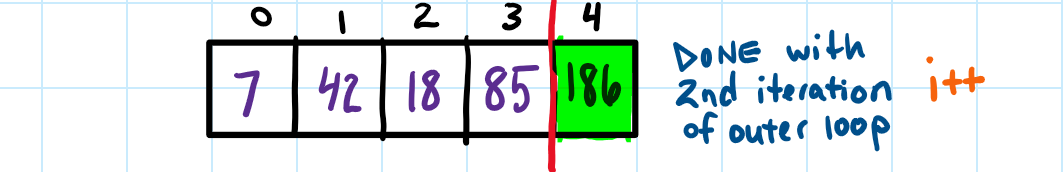 0 1 2 3 4
7 42 18 85 186
DONE with
2nd iteration
of outer loop
i++